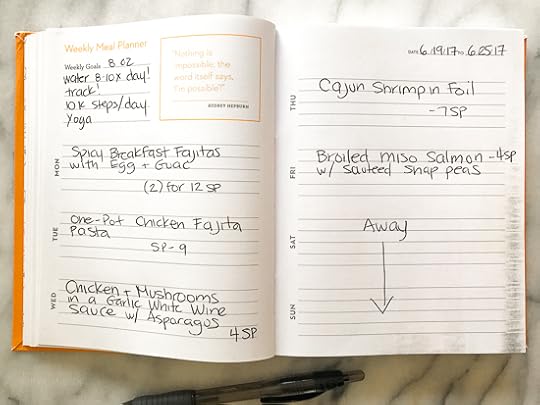 Weekly Meal Planner
Weekly Goals 8 oz
water 8-10x day!
track!
10K steps/day
Yoga
"Nothing is
impossible, the
word itself says,
'I'm possible!'"
AUDREY HEPBURN
MON
Spicy Breakfast Fajitas
with Egg + Guac
(2) for 12 SP
TUE
One-Pot Chicken Fajita
Pasta
SP-9
WED
Chicken + Mushrooms
in a Garlic White Wine
Sauce w/ Asparagus
4 SP
DATE 6.19.17 TO 6.25.17
THU
Cajun Shrimp in Foil
-7SP
FRI
Broiled Miso Salmon -4SP
w/ Sauteed Snap peas
SAT
Away
SUN